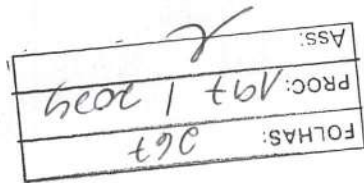 FOLHAS: 267
PROC: 197 / 2024
Ass: